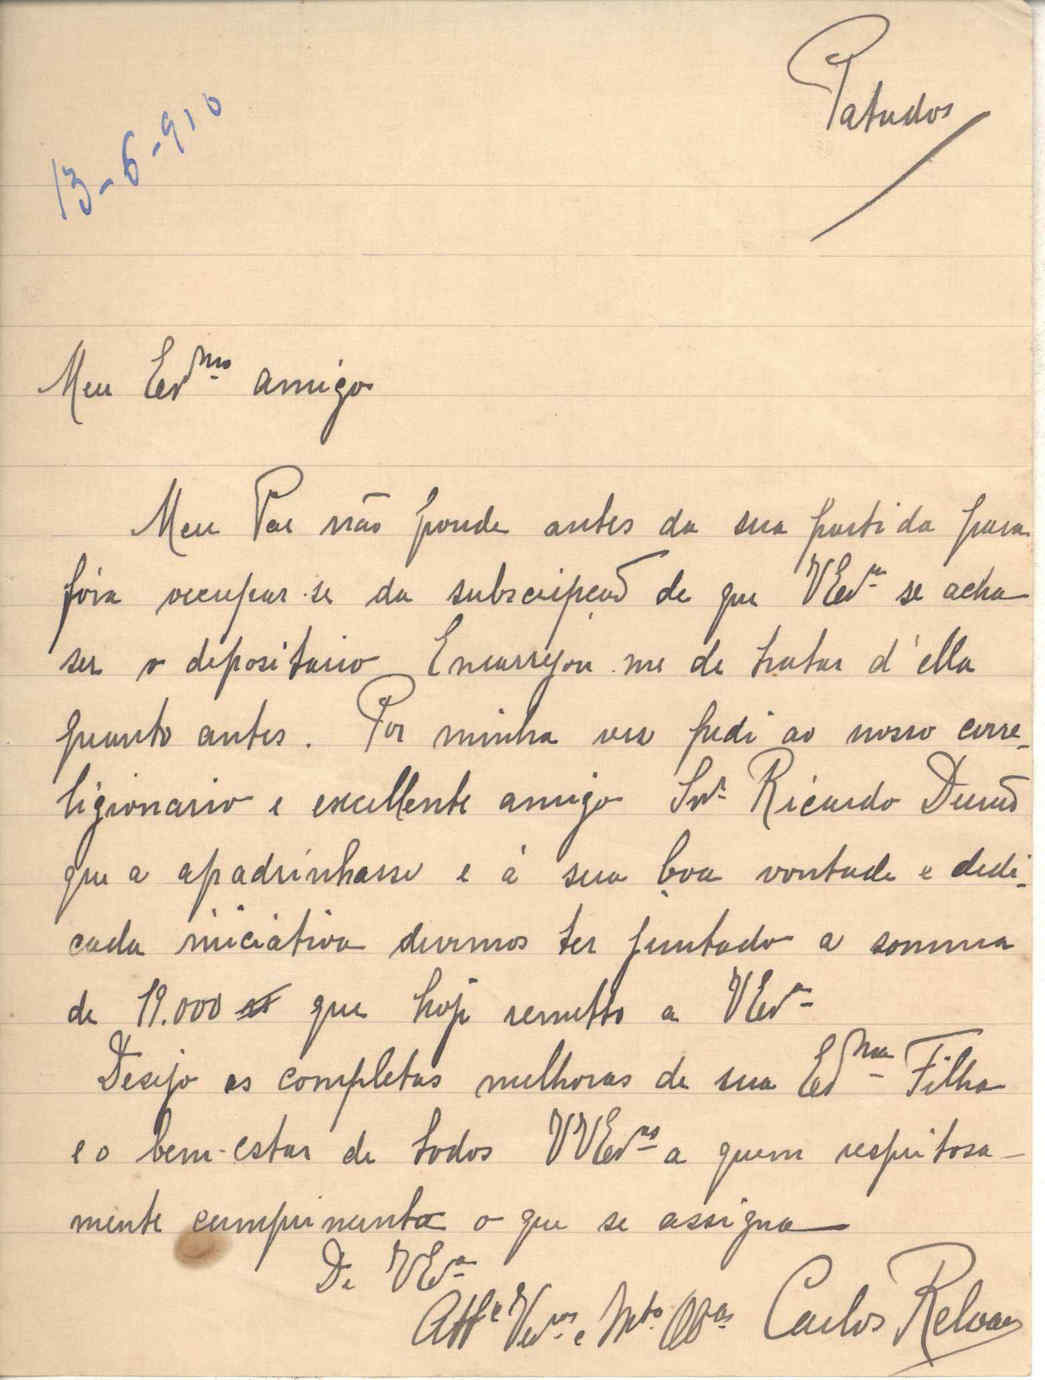 Patudos
13-6-910
Meu Exmo amigo
Meu Pae não ponde antes da sua partida para
fóra occupar-se da subscripção de que VExa se acha
ser o depositario Encarregou-me de tratar d'ella
quanto antes. Por minha vez pedi ao nosso corre-
ligionario e excellente amigo Snr. Ricardo Durão
que a apadrinhasse e á sua boa vontade e dedi-
cada iniciativa devemos ter juntado a somma
de 19.000 rs que hoje remetto a VExa
Desejo as completas melhoras de sua Exma Filha
e o bem-estar de todos VVExas a quem respeitosa-
mente cumprimenta o que se assigna
De VExa
Atte Venor e Mto Obro Carlos Relvas